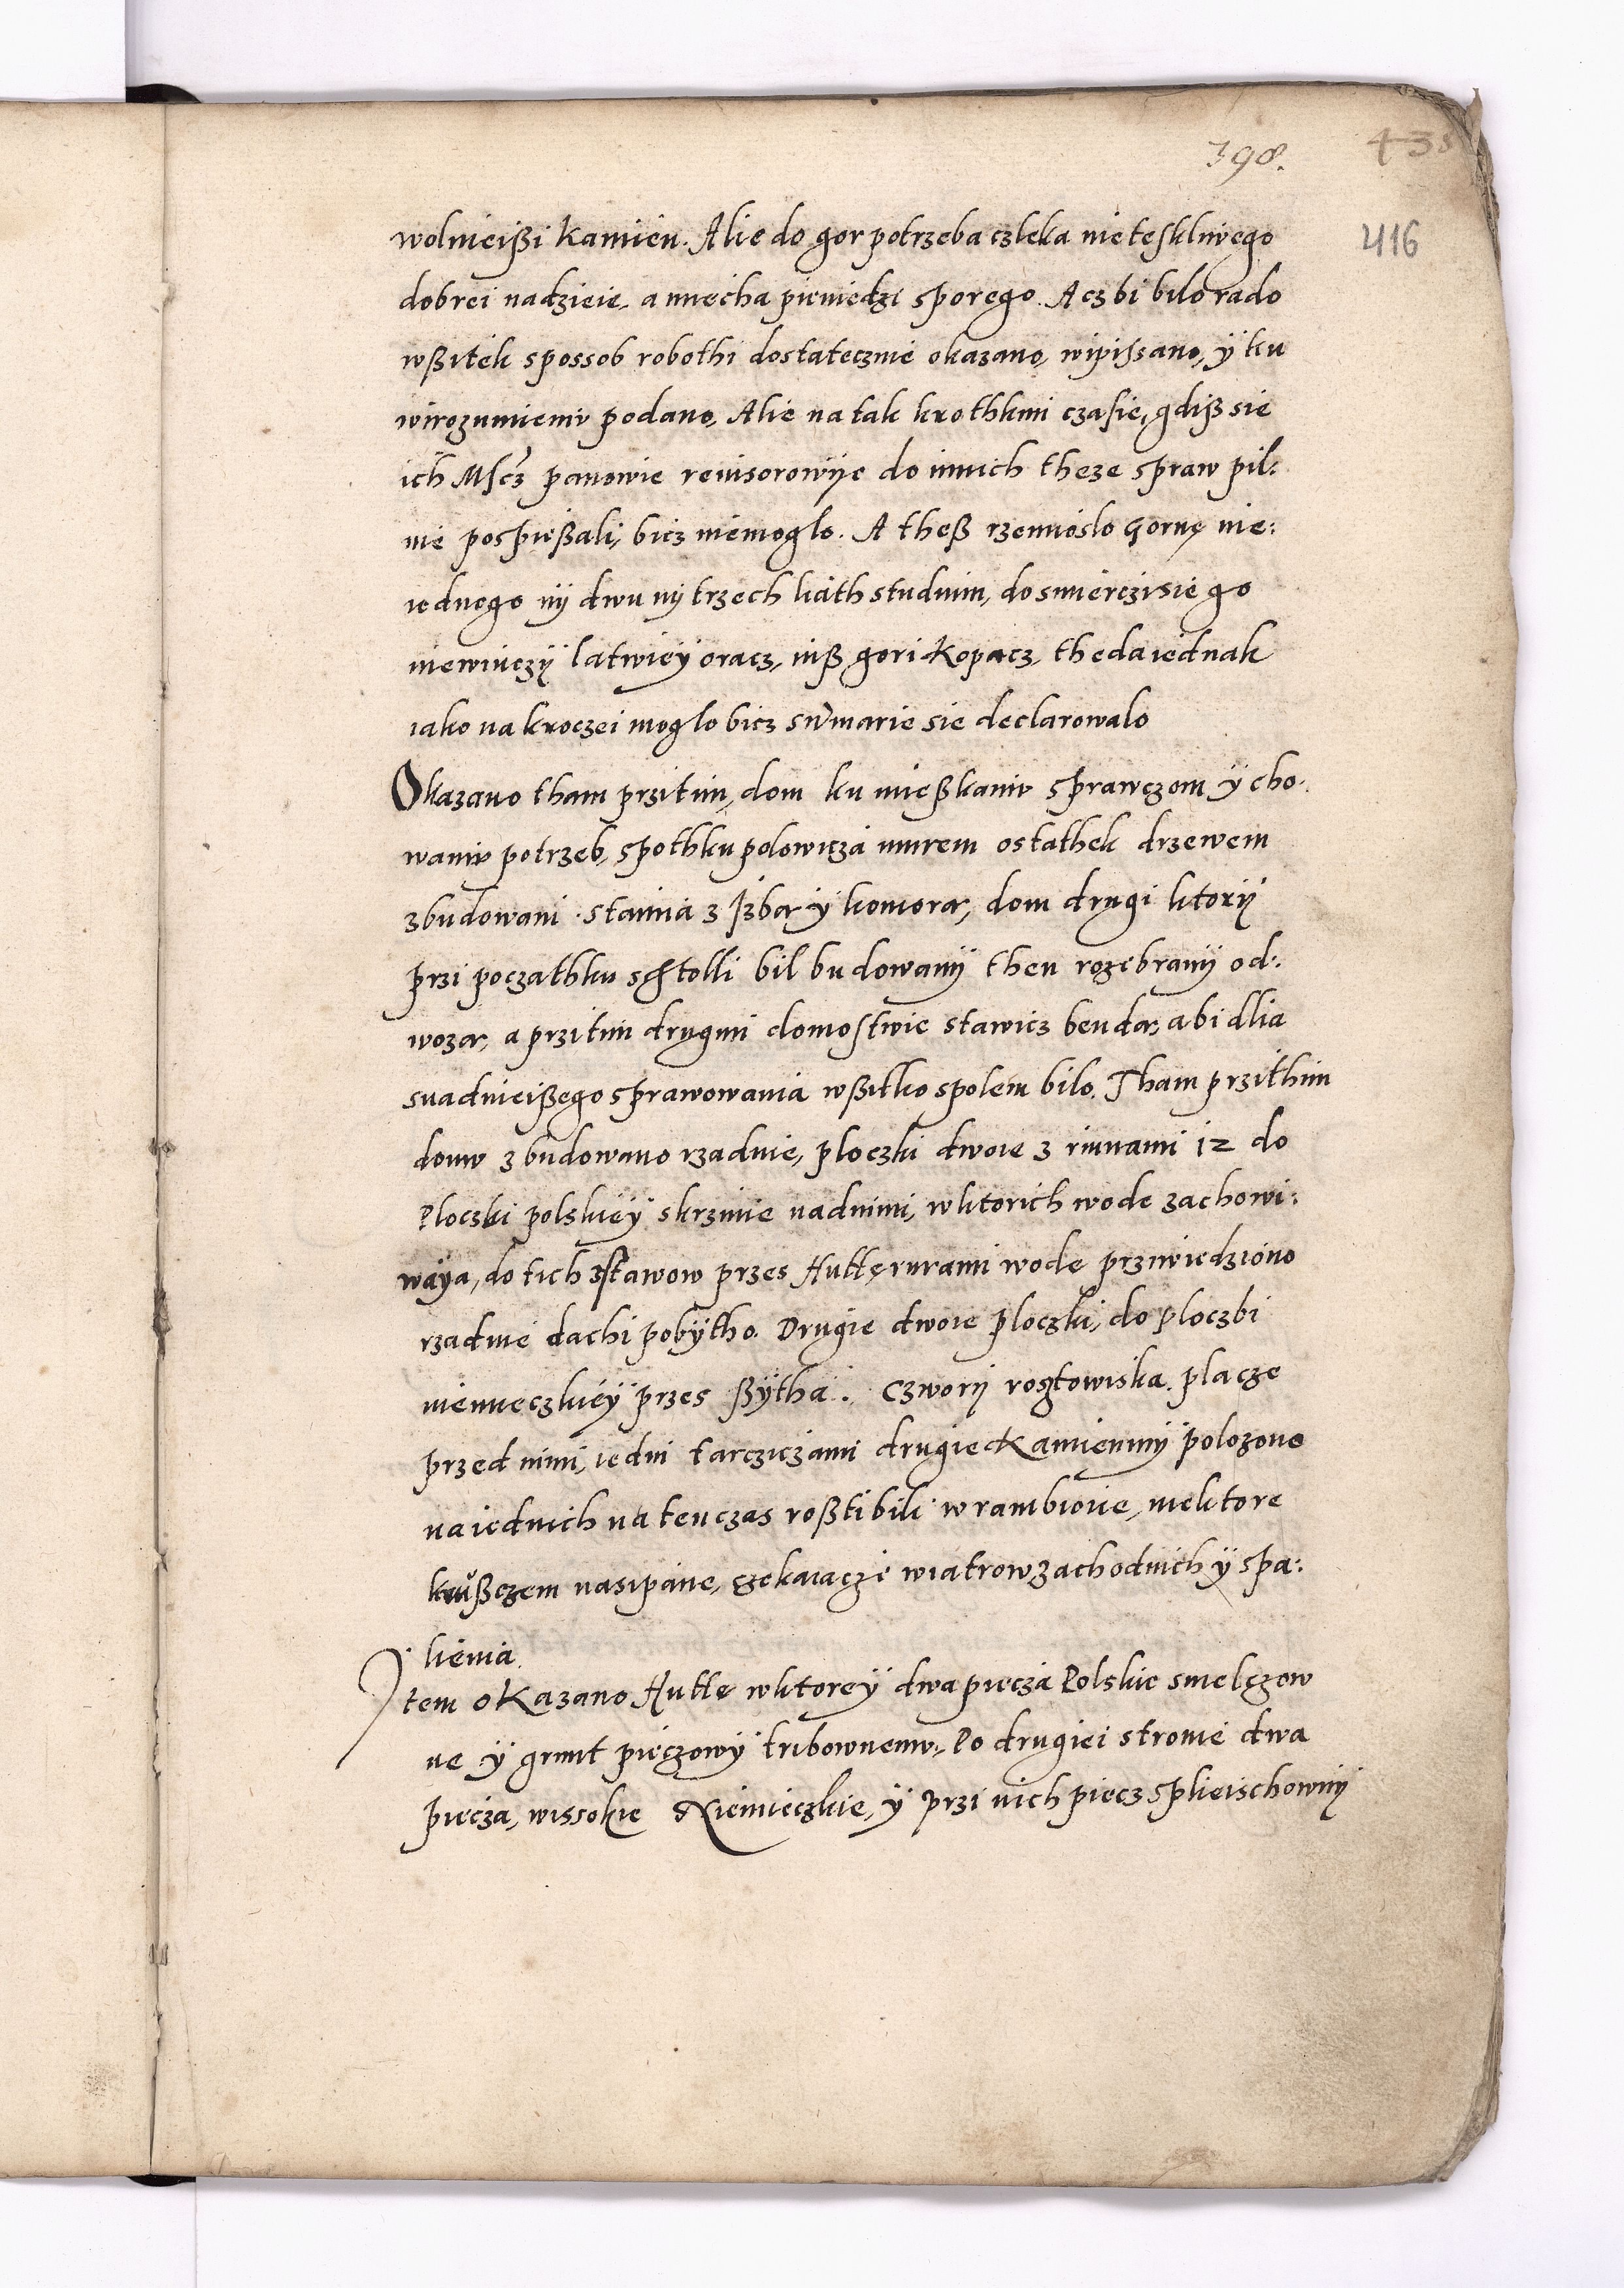 398.
438
416
wolnieißi kamien. Alie do gor potrzeba czleka nieteskliwego
dobrei nadzieie, a miecha pieniedzi sporego. Aczbi bilo rado
wßitek spossob robothi dostatecznie okazano, wipissano, ÿ ku
wirozumieniu podano, Alie na tak krothkim czasie, gdiß sie
ich Mscz panowie reuisorowije do innich theze spraw pil:
nie pospießali, bicz niemoglo. A theß rzemioslo Gornę nie:
iednego nÿ dwu nÿ trzech liath studnim, dosmierczi sie go
niewiuczÿ latwieÿ oracz, niß gori kopacz, theda iednak
iako na kroczei moglo bicz sumarie sie declarowalo
Okazano tham przitim, dom ku mießkaniu sprawczom ÿ cho:
waniu potrzeb, spothku polowicza murem ostathek drzewem
zbudowani. stainia z Izbą ÿ komorą, dom drugi ktorÿ
przi poczathku schtolli bil budowanÿ then rozebranÿ od:
wozą, a przitim drugim domostwie stawicz bendą, abi dlia
snadnieißego sprawowania wßitko spolem bilo. Tham przithim
domu zbudowano rzadnie, ploczki dwoie z rinnami 12 do
Ploczki polskieÿ skrzinie nadnimi, wktorich wode zachowi:
waÿa, do tich stawow przes Huttę rurami wode przuwiedziono
rzadnie dachi pobÿtho. Drugie dwoie ploczki, do ploczbi
niemieczkieÿ przes ßÿtha. Czworÿ rostowiska. place
przed nimi, iedni tarcziczami drugie kamienmÿ polozono
na iednich na tenczas roßti bili wrambione, niektore
krußczem nasipane, czekaiaczi wiatrow zachodnich ÿ spa:
lienia.
Item okazano Hutte wktoreÿ dwa piecza Polskie smelczow
ne ÿ grunt pieczowÿ tribownemu. Po drugiei stronie dwa
piecza, wissokie Niemieczkie, ÿ przi nich piecz splieischownÿ